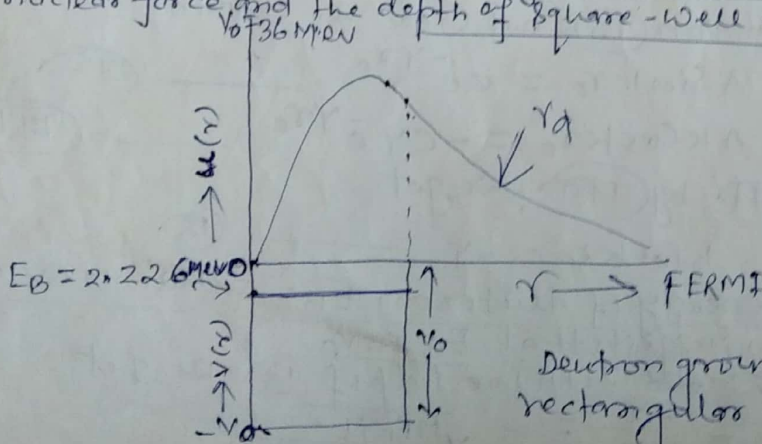 nuclear force and the depth of square-well
V₀=36 Mev
→ u(r)
rd
E_B = 2.226 Mev 0
r → FERMI
→ V(r)
V₀
-V₀
Deutron grou
rectangular